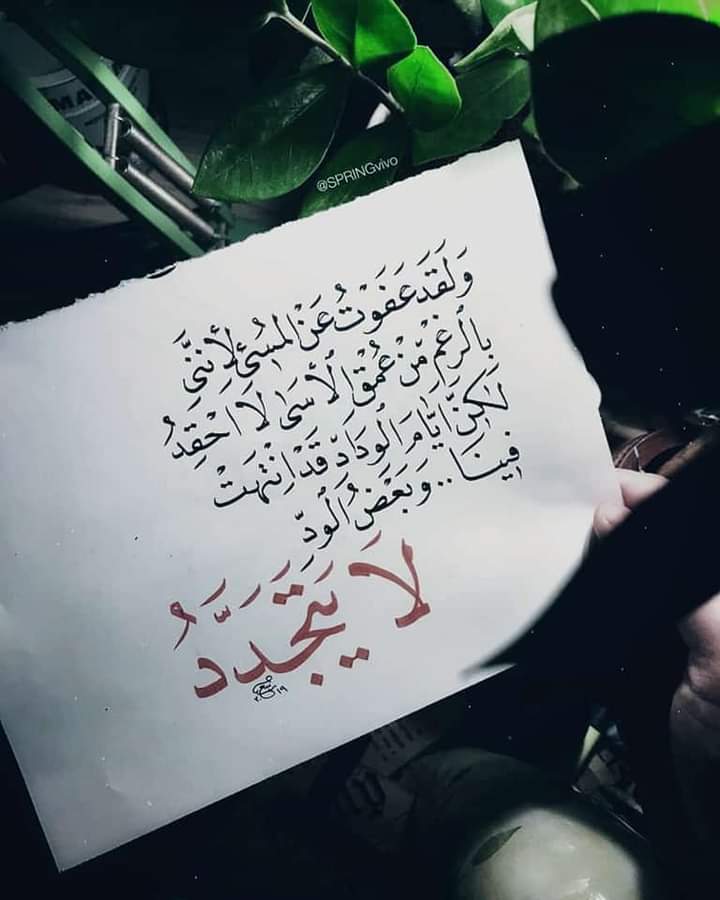 @SPRINGvivo
وَلَقَدَ عَفَوْتُ عَنْ المُسْئِ لِأَنَّنِى
بِالرَّغْمِ مِّنْ عُمْقِ الْأَسَى لَا اَحْقِدُ
لَكِنَّ اَيَّامَ الْوِدَادِّ قَدْ اِنْتَهَتْ
فِينَا .. وَبَعْضُ الْوِدِّ
لَا يَتَجَدَّدُ